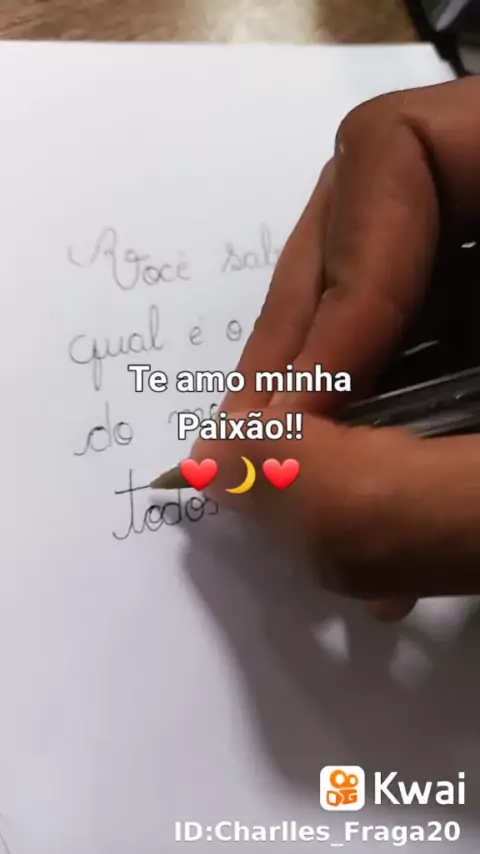 Você
qual é o
do
todos
Te amo minha
Paixão!!
❤️🌙❤️
Kwai
ID:Charlles_Fraga20